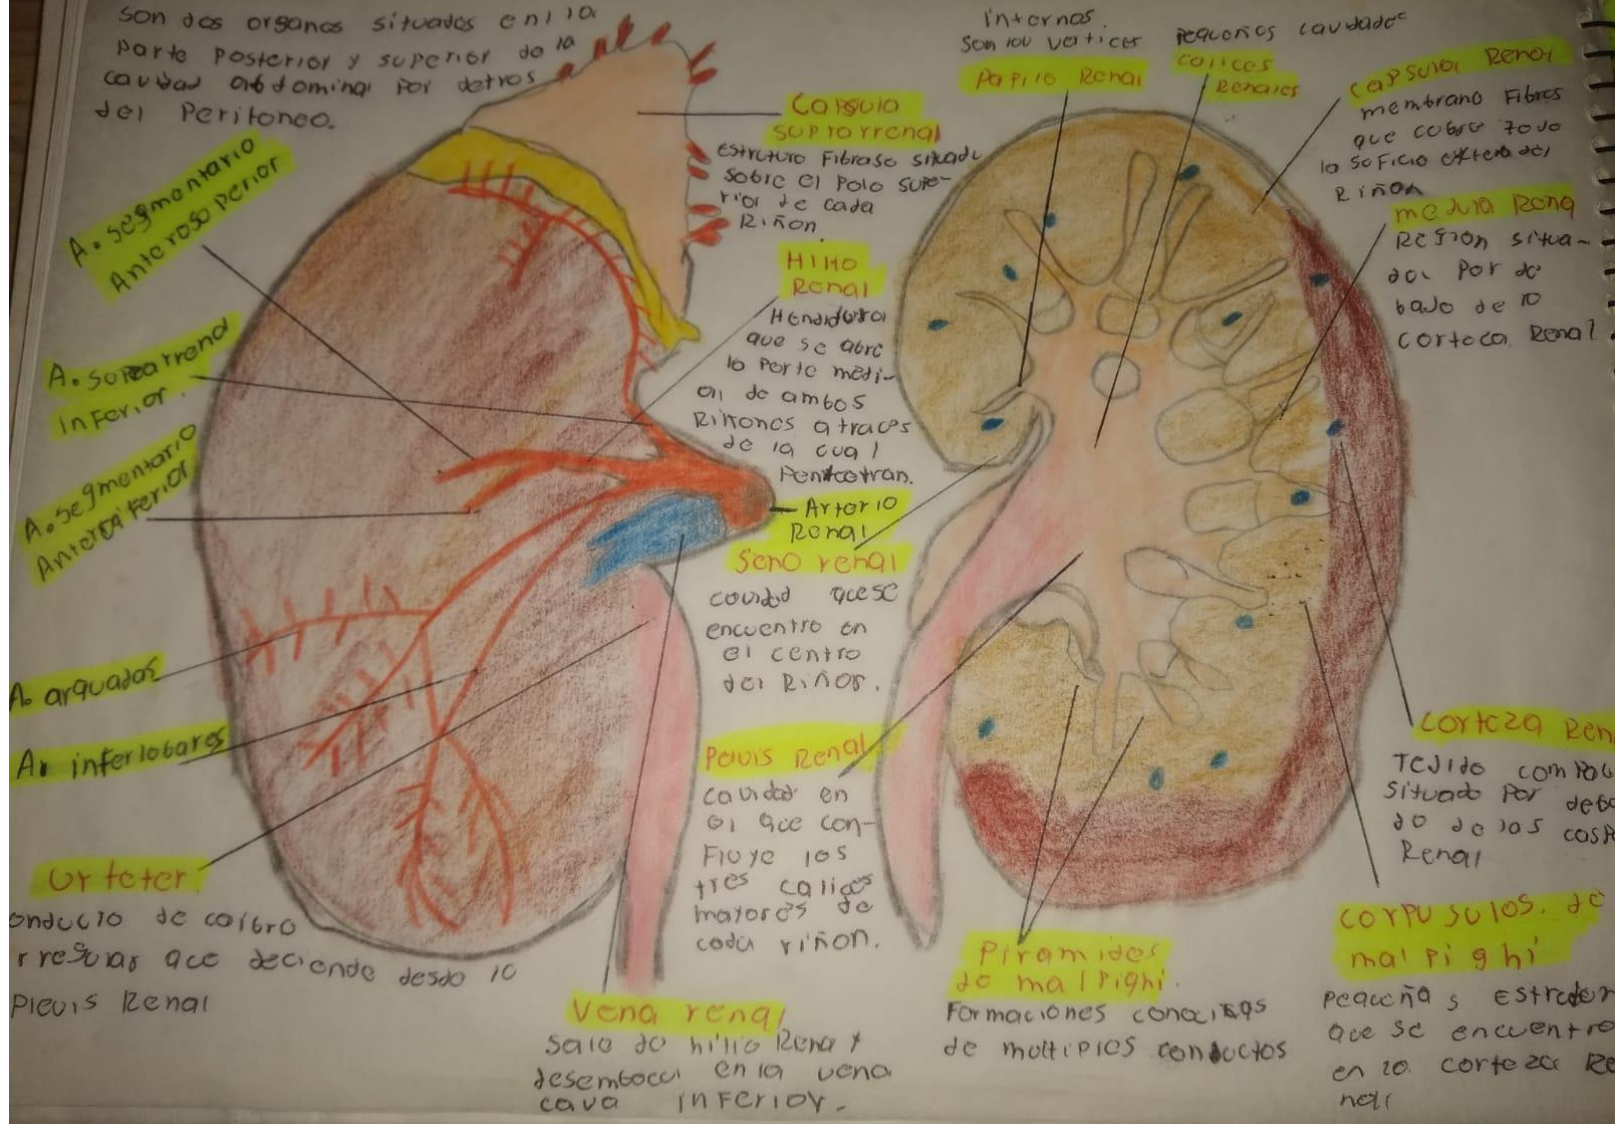 son dos organos situados en la
parte posterior y superior de la
cavidad abdominal por detros
del Peritoneo.
A. segmentario
Anteroso perior
A. soprarrenal
inferior.
A. segmentario
Anteroinferior
A. arquadas
A. inferlobares
Urteter
onducio de calibro
rregular que deciende desde lo
Plevis Renal
Capsula
suprarrenal
Estructuro Fibraso situada
sobre el Polo supe-
rior de cada
Riñon.
Hilio
Renal
Hendidura
que se abre
la parte medi-
al de ambos
Riñones atraces
de la cual
Penetran.
Arterio
Renal
Seno renal
cavidad que se
encuentro en
el centro
del Riñon.
Pelvis Renal
cavidad en
el que con-
Fluye los
tres calices
mayores de
cada riñon.
Vena renal
sale do hilio Renal y
desemboca en la vena
cava inferior.
internos.
son los vertices
Papilo Renal
Pequeños cavidades
calices
Renales
capsula Renal
membrano Fibros
que cobre todo
la soficio externa del
Riñon
medula Rena
Region situa-
da por de
bajo de lo
corteca Renal
corteza Ren
Tejido compou
situado por deba
do de las cosp
Renal
corpusulos. de
malpighi
Pequeñas estructur
que se encuentro
en lo corteza Re
nal
Piramides
de malpighi.
Formaciones conocidas
de moltiples conductos